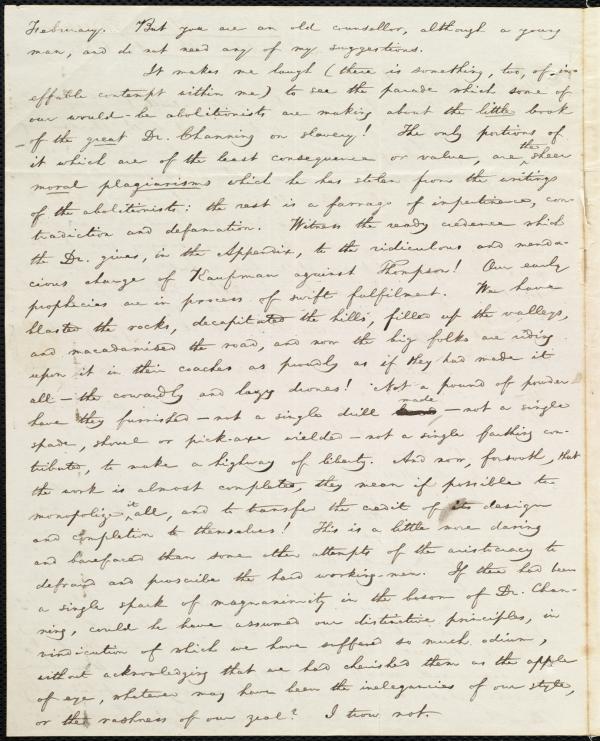 February. But you are an old counsellor, although a young
man, and do not need any of my suggestions.
It makes me laugh (there is something, too, of in-
effable contempt within me) to see the parade which some of
our would-be abolitionists are making about the little book
of the great Dr. Channing on slavery! The only portions of
it which are of the least consequence or value, are the sheer
moral plagiarisms which he has stolen from the writings
of the abolitionists: the rest is a farrago of impertinence, con-
tradiction and defamation. Witness the ready credence which
the Dr. gives, in the Appendix, to the ridiculous and menda-
cious charge of Kaufman against Thompson! Our early
prophecies are in process of swift fulfilment. We have
blasted the rocks, decapitated the hills, filled up the valleys,
and macadamised the road, and now the big folks are riding
upon it in their coaches as proudly as if they had made it
all — the cowardly and lazy drones! Not a pound of powder
have they furnished — not a single drill made — not a single
spade, shovel or pick-axe wielded — not a single farthing con-
tributed, to make a highway of liberty. And now, forsooth, that
the work is almost completed, they mean if possible to
monopolize it all, and to transfer the credit of its design
and completion to themselves! This is a little more daring
and barefaced than some other attempts of the aristocracy to
defraud and proscribe the hard working-men. If there had been
a single spark of magnanimity in the bosom of Dr. Chan-
ning, could he have assumed our distinctive principles, in
vindication of which we have suffered so much odium,
without acknowledging that we had cherished them as the apple
of eye, whatever may have been the inelegancies of our style,
or the rashness of our zeal? I trow not.